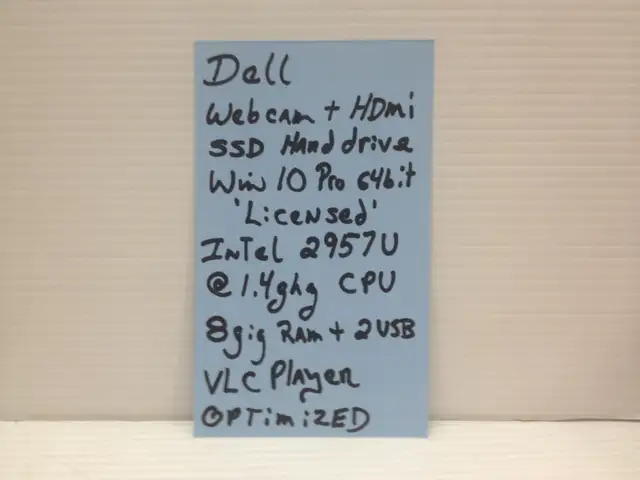 Dell
Webcam + HDmi
SSD Hard drive
Win 10 Pro 64bit
'Licensed'
INTel 2957U
@1.4ghg CPU
8gig RAm + 2USB
VLC Player
OPTimiZED